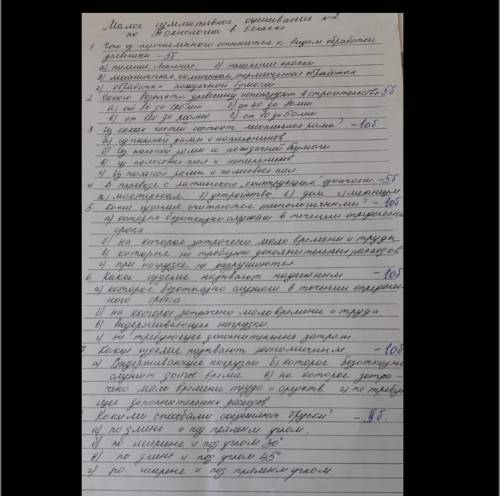 Малое суммативное оценивание №2
по технологии в 6 классе
1. Что из перечисленного относится к видам обработки
древесины – 5б
а) пиление, лакение б) нанесение краски
в) механическая, химическая, термическая обработка
г) обработка наждачной бумаги
2. Какого возраста древесину используют в строительстве 5б
а) от 80 до 120 лет б) от 40 до 80 лет
в) от 120 до г) от 20 до 50 лет
3. Из каких частей состоит лесопильная рама? – 10б
а) из пильной рамы и напильников
б) Из пильной рамы и наждачной бумаги
в) из полосовых пил и напильников
г) Из пильной рамы и полосовых пил
4. В переводе с латинского "конструкция" означает – 5б
а) мастерская б) устройство в) дом г) механизм
5. Какие изделие считается технологичными? – 10б
а) которое безотказно служат в течении определенного
срока
б) на которое затрачено мало времени и труды
в) которое не требующ дополнительных расходов
г) при нагрузке не разрушаются
6. Какое изделие называют надежным – 10б
а) которое безотказно служат в течении определен-
ного срока
б) на которое затрачено мало времени и труда
в) Выдерживающее нагрузки
г) не требующее дополнительных затрат
7 Какое изделие называют экономичным – 10б
а) Выдерживающее нагрузки б) которое безотказно
служит долгое время в) на которое затра-
чено мало времени труда и средств г) не требую-
щее дополнительных расходов
Какими способами соединяют бруски? – 5б
а) по длине и под прямым углом
б) по ширине и под углом 30°
в) по длине и под углом 45°
г) по ширине и под прямым углом